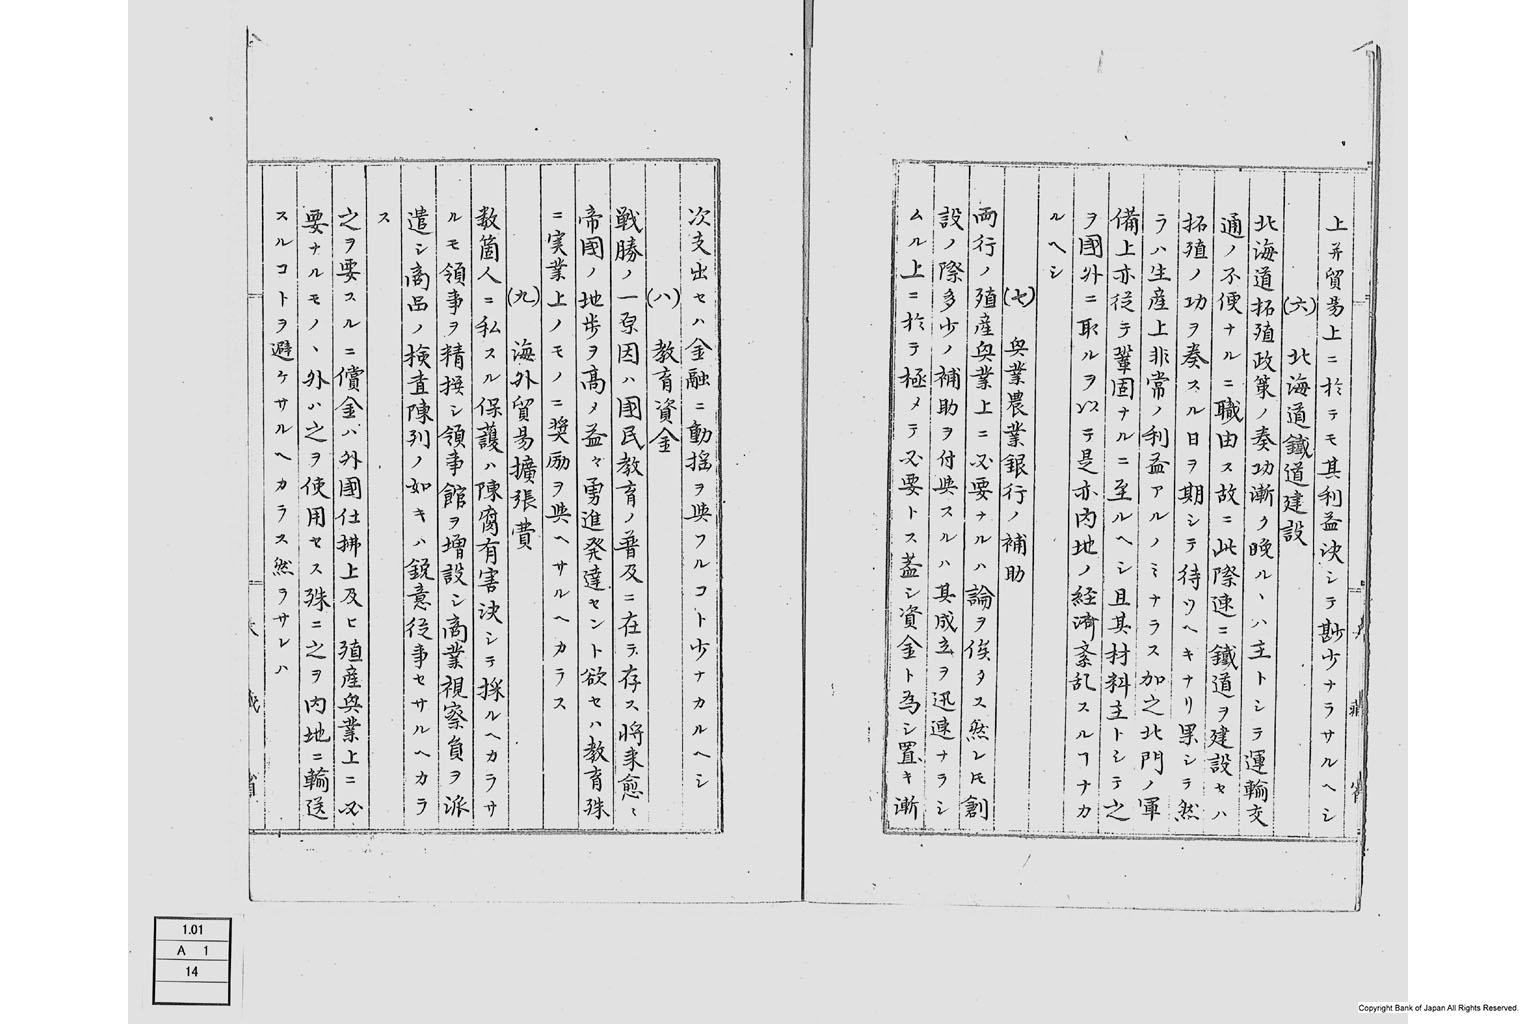 上并貿易上ニ於テモ其利益决シテ尠少ナラサルヘシ
(六) 北海道鐵道建設
北海道拓殖政策ノ奏功漸ク晩ル丶ハ主トシテ運輸交
通ノ不便ナルニ職由ス故ニ此際速ニ鐵道ヲ建設セハ
拓殖ノ功ヲ奏スル日ヲ期シテ待ツヘキナリ果シテ然
ラハ生産上非常ノ利益アルノミナラス加之北門ノ軍
備上亦従テ鞏固ナルニ至ルヘシ且其材料主トシテ之
ヲ國外ニ取ルヲ以テ是亦内地ノ経済紊乱スルヿナカ
ルヘシ
(七) 興業農業銀行ノ補助
両行ノ殖産興業上ニ必要ナルハ論ヲ俟タス然レ𪜈創
設ノ際多少ノ補助ヲ付与スルハ其成立ヲ迅速ナラシ
ムル上ニ於テ極メテ必要トス蓋シ資金ト為シ置キ漸
次支出セハ金融ニ動揺ヲ与フルコト少ナカルヘシ
(八) 教育資金
戦勝ノ一原因ハ國民教育ノ普及ニ在テ存ス将来愈々
帝國ノ地歩ヲ高メ益々勇進発達セント欲セハ教育殊
ニ実業上ノモノニ奨励ヲ与ヘサルヘカラス
(九) 海外貿易擴張費
数箇人ニ私スル保護ハ陳腐有害决シテ採ルヘカラサ
ルモ領事ヲ精撰シ領事館ヲ増設シ商業視察員ヲ派
遣シ商品ノ検査陳列ノ如キハ鋭意従事セサルヘカラ
ス
之ヲ要スルニ償金ハ外國仕拂上及ヒ殖産興業上ニ必
要ナルモノヽ外ハ之ヲ使用セス殊ニ之ヲ内地ニ輸送
スルコトヲ避ケサルヘカラス然ラサレハ
1.01
A 1
14
Copyright Bank of Japan All Rights Reserved.